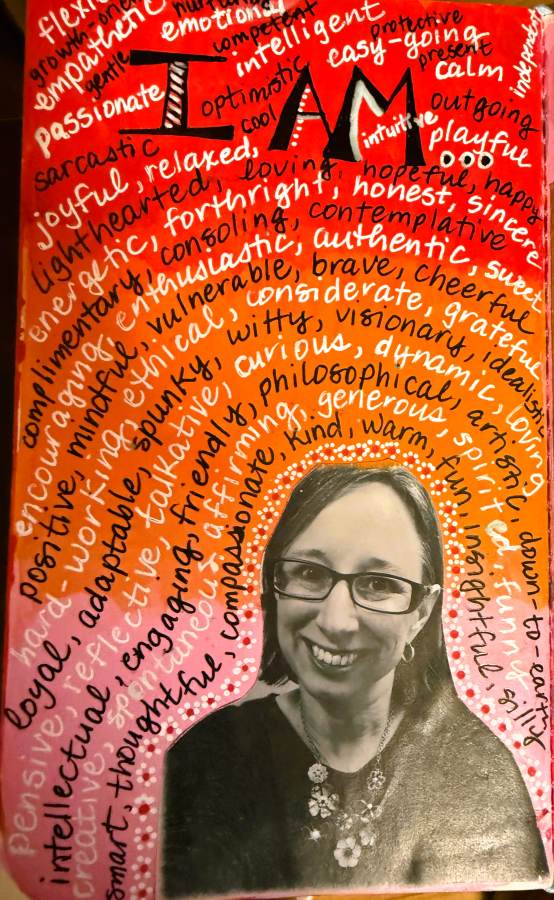 emotional
empathetic
competent
gentle
intelligent
protective
easy-going
present
calm
independent
passionate
I AM...
optimistic
cool
outgoing
intuitive
playful
sarcastic
joyful, relaxed,
lighthearted, loving, hopeful, happy
energetic, forthright, honest, sincere
complimentary, consoling, contemplative
encouraging, enthusiastic, authentic, sweet
positive, mindful, vulnerable, brave, cheerful
hard-working, ethical, considerate, grateful
loyal, adaptable, spunky, witty, visionary, idealistic
pensive, reflective, talkative, curious, dynamic, loving
intellectual, engaging, friendly, philosophical, artistic, down-to-earth
creative, spontaneous, affirming, generous, spirited, funny
smart, thoughtful, compassionate, kind, warm, fun, insightful, silly